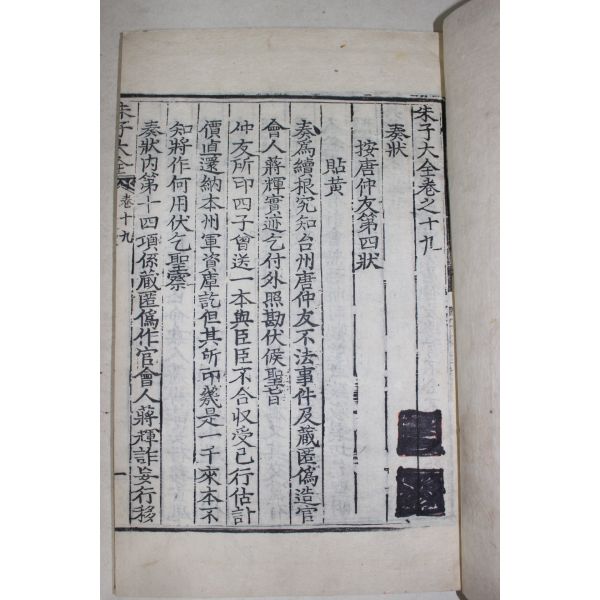 朱子大全卷之十九
奏狀
按唐仲友第四狀
貼黃
奏爲續根究知台州唐仲友不法事件及藏匿僞造官
會人蔣輝實迹乞付外照勘伏候聖旨
仲友所印四子曾送一本與臣臣不合收受已行估計
價直還納本州軍資庫訖但其所印幾是一千來本不
知將作何用伏乞聖察
奏狀內第十四項係藏匿僞作官會人蔣輝詐妄行移
朱子大全 卷十九
一